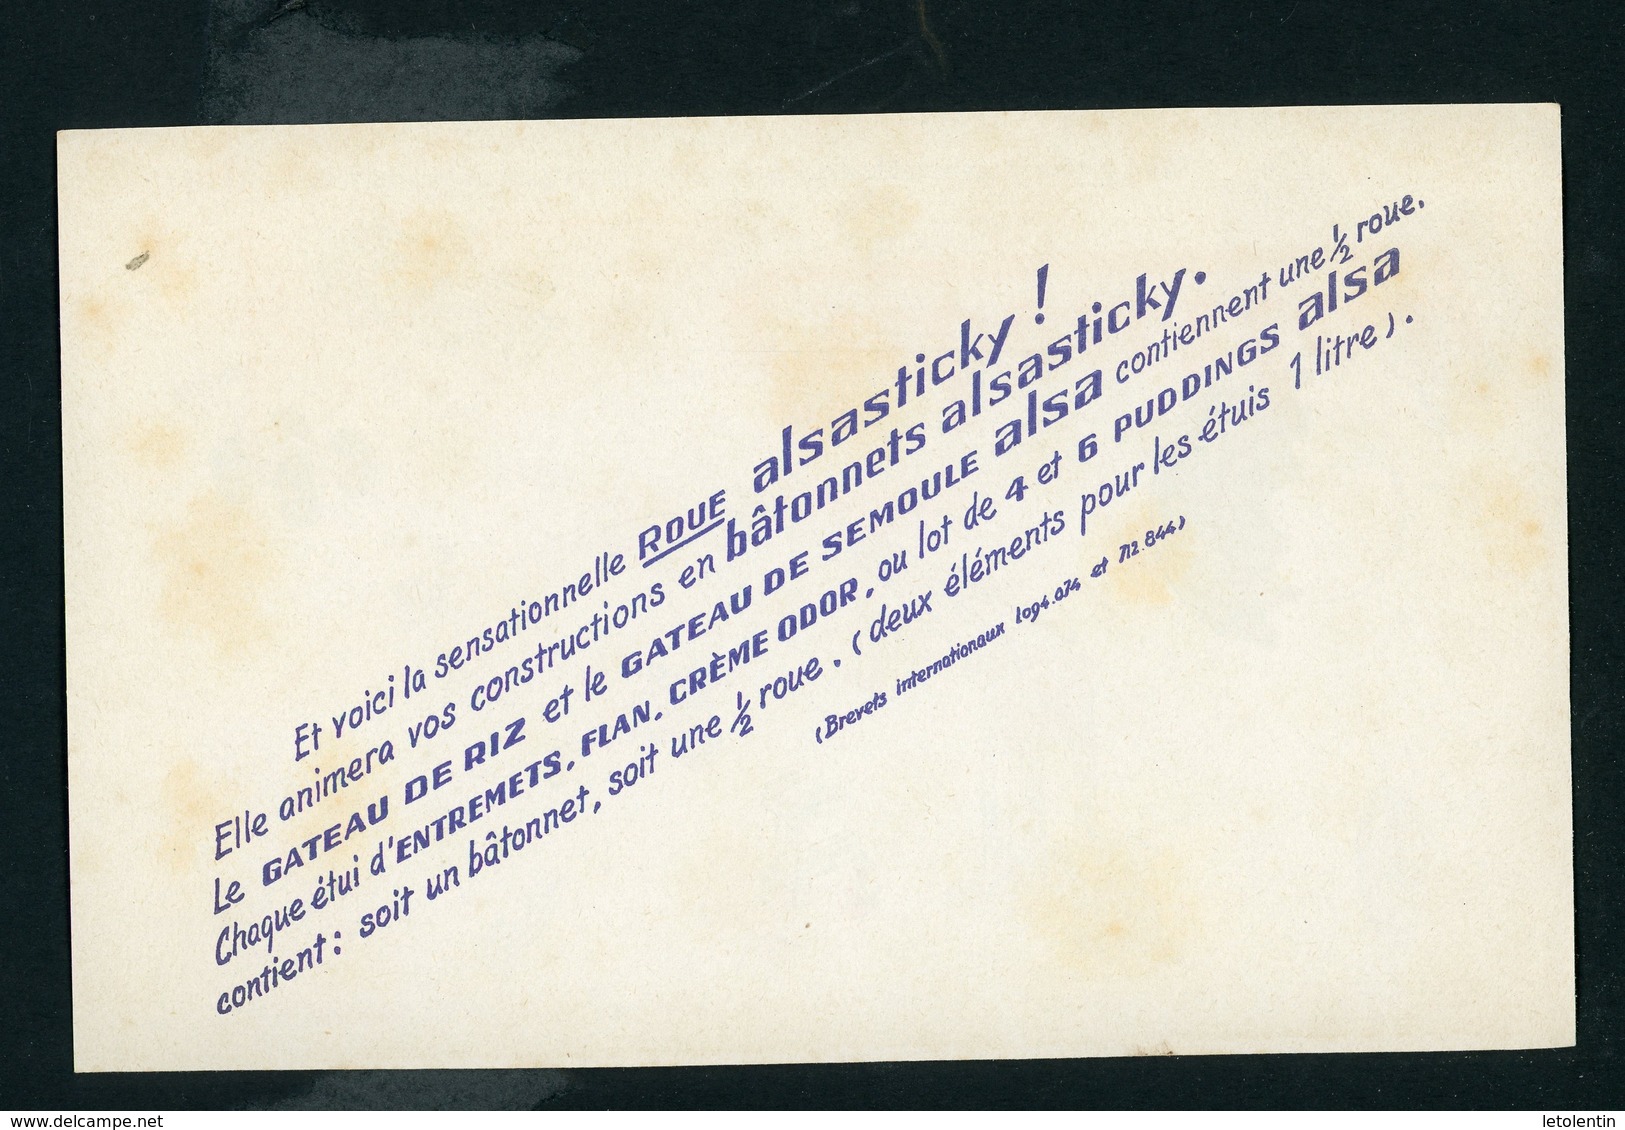 Et voici la sensationnelle ROUE alsasticky !
Elle animera vos constructions en bâtonnets alsasticky.
Le GATEAU DE RIZ et le GATEAU DE SEMOULE alsa contiennent une ½ roue.
Chaque étui d'ENTREMETS, FLAN, CRÈME ODOR, ou lot de 4 et 6 PUDDINGS alsa
contient : soit un bâtonnet, soit une ½ roue. (deux éléments pour les étuis 1 litre).
(Brevets internationaux 1094.074 et 712.844)
delcampe.net
letolentin